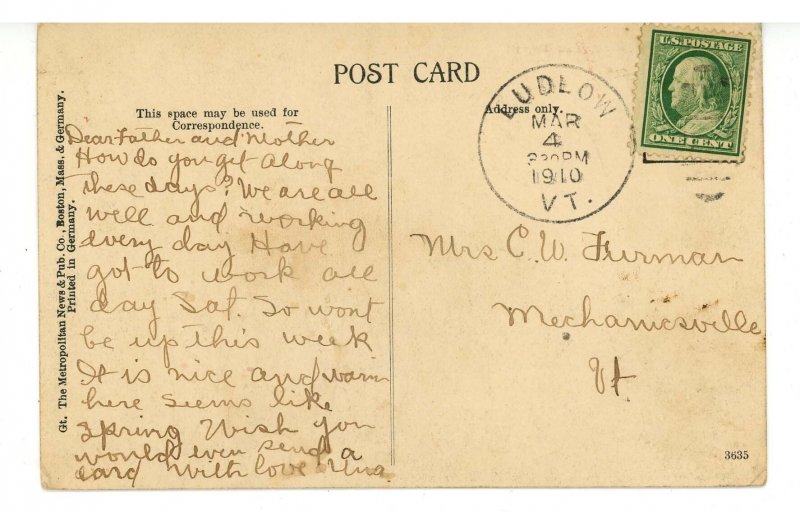 POST CARD
This space may be used for
Correspondence.
Address only.
Gt. The Metropolitan News & Pub. Co., Boston, Mass. & Germany.
Printed in Germany.
Dear Father and Mother
How do you get along
these days? We are all
well and working
every day Have
got to work all
day Sat. So wont
be up this week
It is nice and warm
here seems like
spring Wish you
would even send a
card With love Una
LUDLOW
MAR
4
1910
VT.
U.S. POSTAGE
ONE CENT
Mrs C. W. Furman
Mechanicsville
Vt
3635